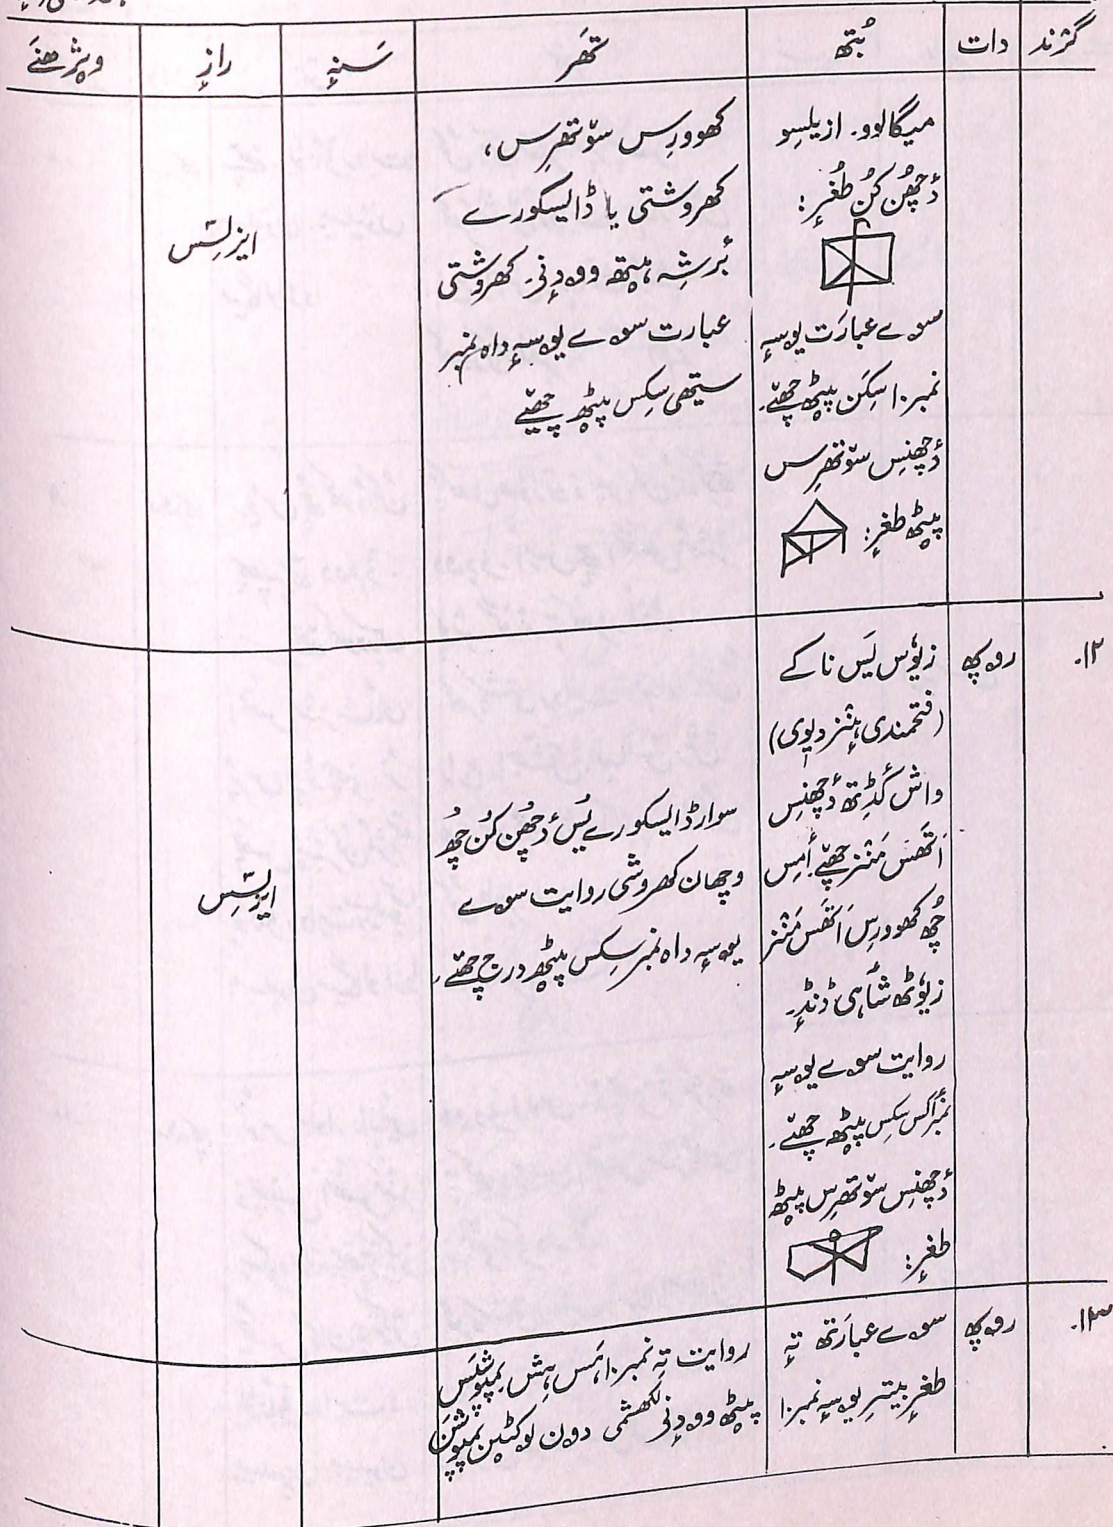 گژند دات بُتھ تھَر سَنہٕ رازٕ ویژھنَے
میگالوو۔ ازیلسِو
دٔچھُن کُن طُغرٕ:
سوے عبارَت یوسہٕ
نمبر۱۰ سِکَن پیٹھ چھےٚ۔
دٔچھنِس سۆتھرِس
پیٹھ طغرٕ:
کھوورِس سۆتھرِس،
کھروشتی یا ڈایسکورے
بُرشِہ ہیتھ وودٕنی۔ کھروشتی
عبارت سوے یوسہٕ داہ نمبر
سیتھی سِکس پیٹھ چھےٚ
ایزلِسٕس
۱۲۔ روپھ
زیوٗس یَس ناکے
(فتحمندی ہٕنز دیوی)
واش کٔڈِتھ دٔچھنِس
اَتھَس مَنٛز چھےٚ أمِس
چُھ کھوورِس اَتھَس مَنٛز
زیوٗٹھ شاہی ڈنڈٕ۔
روایت سوے یوسہٕ
نمبر اکس سِکس پیٹھ چھےٚ۔
دٔچھنِس سۆتھرِس پیٹھ
طغرٕ:
سوار ڈایسکورے یُس دٔچھُن کُن چُھ
وچھان کھروشی روایت سوے
یوسہٕ داہ نمبر سِکس پیٹھ درج چھےٚ۔
ایزلِسٕس
۱۳۔ روپھ
سوے عبارَتھ تہٕ
طغرٕ بیترِ یوسہٕ نمبر۱۰
روایت تہٕ نمبر۱۰ ہَس ہِش پمپوشَس
پیٹھ وودٕنی لکھشمی دون لوکٹین پمپوشَن